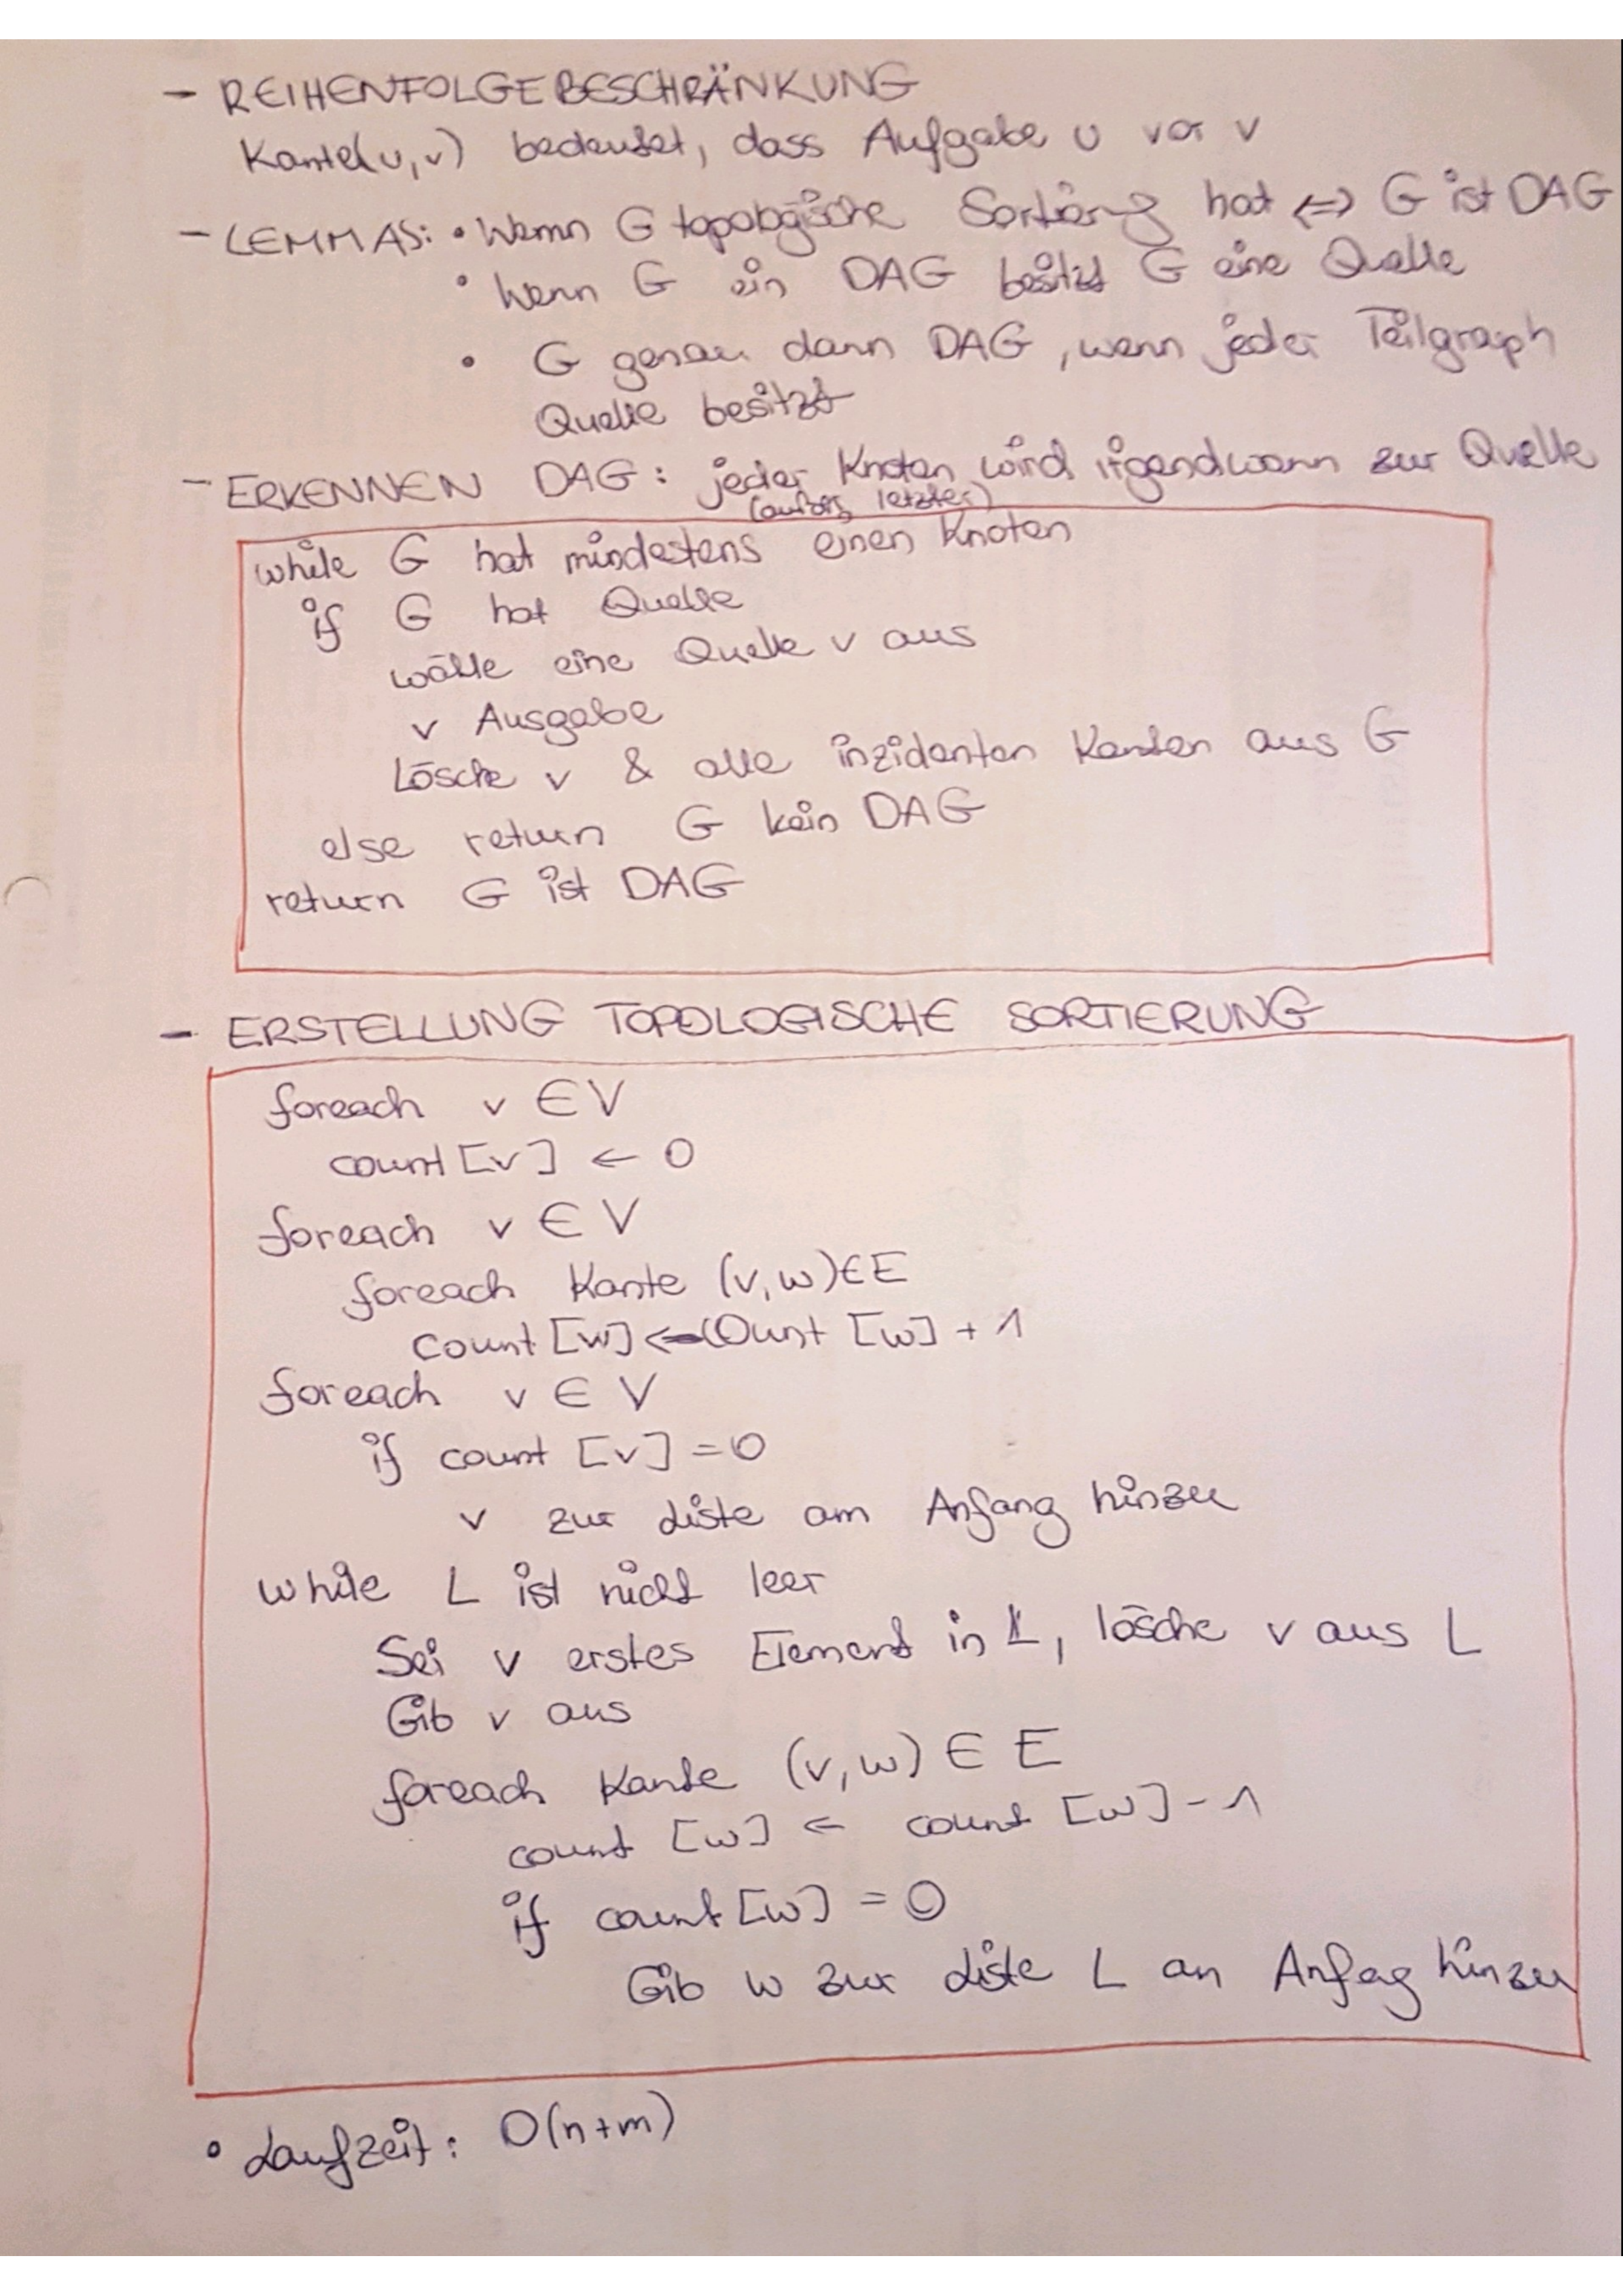 - REIHENFOLGEBESCHRÄNKUNG
Kante(u,v) bedeutet, dass Aufgabe u vor v
- LEMMAS: • Wenn G topologische Sortierung hat <=> G ist DAG
• Wenn G ein DAG besitzt G eine Quelle
• G genau dann DAG, wenn jeder Teilgraph
Quelle besitzt
- ERKENNEN DAG: jeder Knoten wird irgendwann zur Quelle
(außer letzter)
while G hat mindestens einen Knoten
if G hat Quelle
wähle eine Quelle v aus
v Ausgabe
Lösche v & alle inzidenten Kanten aus G
else return G kein DAG
return G ist DAG
- ERSTELLUNG TOPOLOGISCHE SORTIERUNG
foreach v ∈ V
count [v] ← 0
foreach v ∈ V
foreach Kante (v,w) ∈ E
count [w] ← count [w] + 1
foreach v ∈ V
if count [v] = 0
v zur Liste am Anfang hinzu
while L ist nicht leer
Sei v erstes Element in L, lösche v aus L
Gib v aus
foreach Kante (v,w) ∈ E
count [w] ← count [w] - 1
if count [w] = 0
Gib w zur Liste L an Anfag hinzu
• Laufzeit: O(n+m)